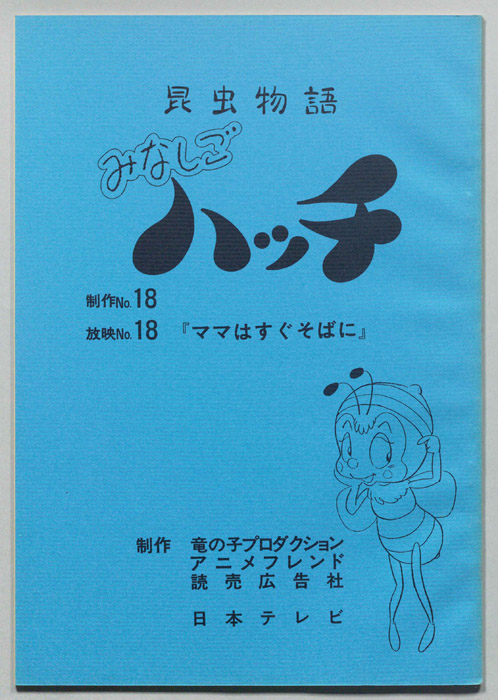 昆虫物語
みなしご
ハッチ
制作No.18
放映No.18 『ママはすぐそばに』
制作 竜の子プロダクション
アニメフレンド
読売広告社
日本テレビ